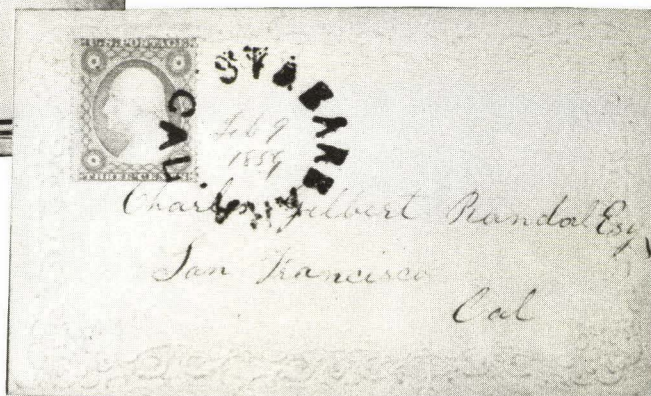 U.S. POSTAGE
THREE CENTS
STA BARB
CAL
Feb 9
1859
Charles Gilbert Randal Esq
San Francisco
Cal